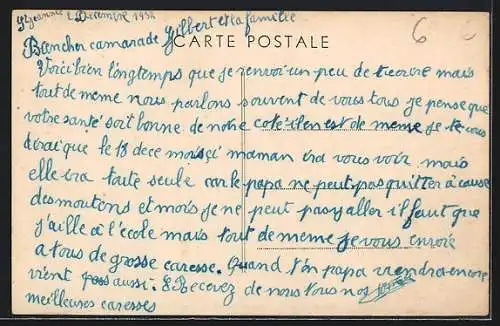 St Jeannet 2 Décembre 1932
Bien cher camarade Gilbert et la famille
CARTE POSTALE
6
Voici bien longtemps que je renvoi un peu de mais
tout de meme nous parlons souvent de vous tous je pense que
votre santé soit bonne de notre coté il en est de meme je te vous
dirai que le 18 de ce mois çi maman ira vous voir mais
elle ira toute seule car le papa ne peut pas quitter à cause
des moutons et mois je ne peut pas y aller il faut que
j'aille à l'école mais tout de meme je vous envoie
a tous de grosse caresse. Quand t'on papa viendra encore
vient aussi. Recevez de nous tous nos
meilleuses caresses